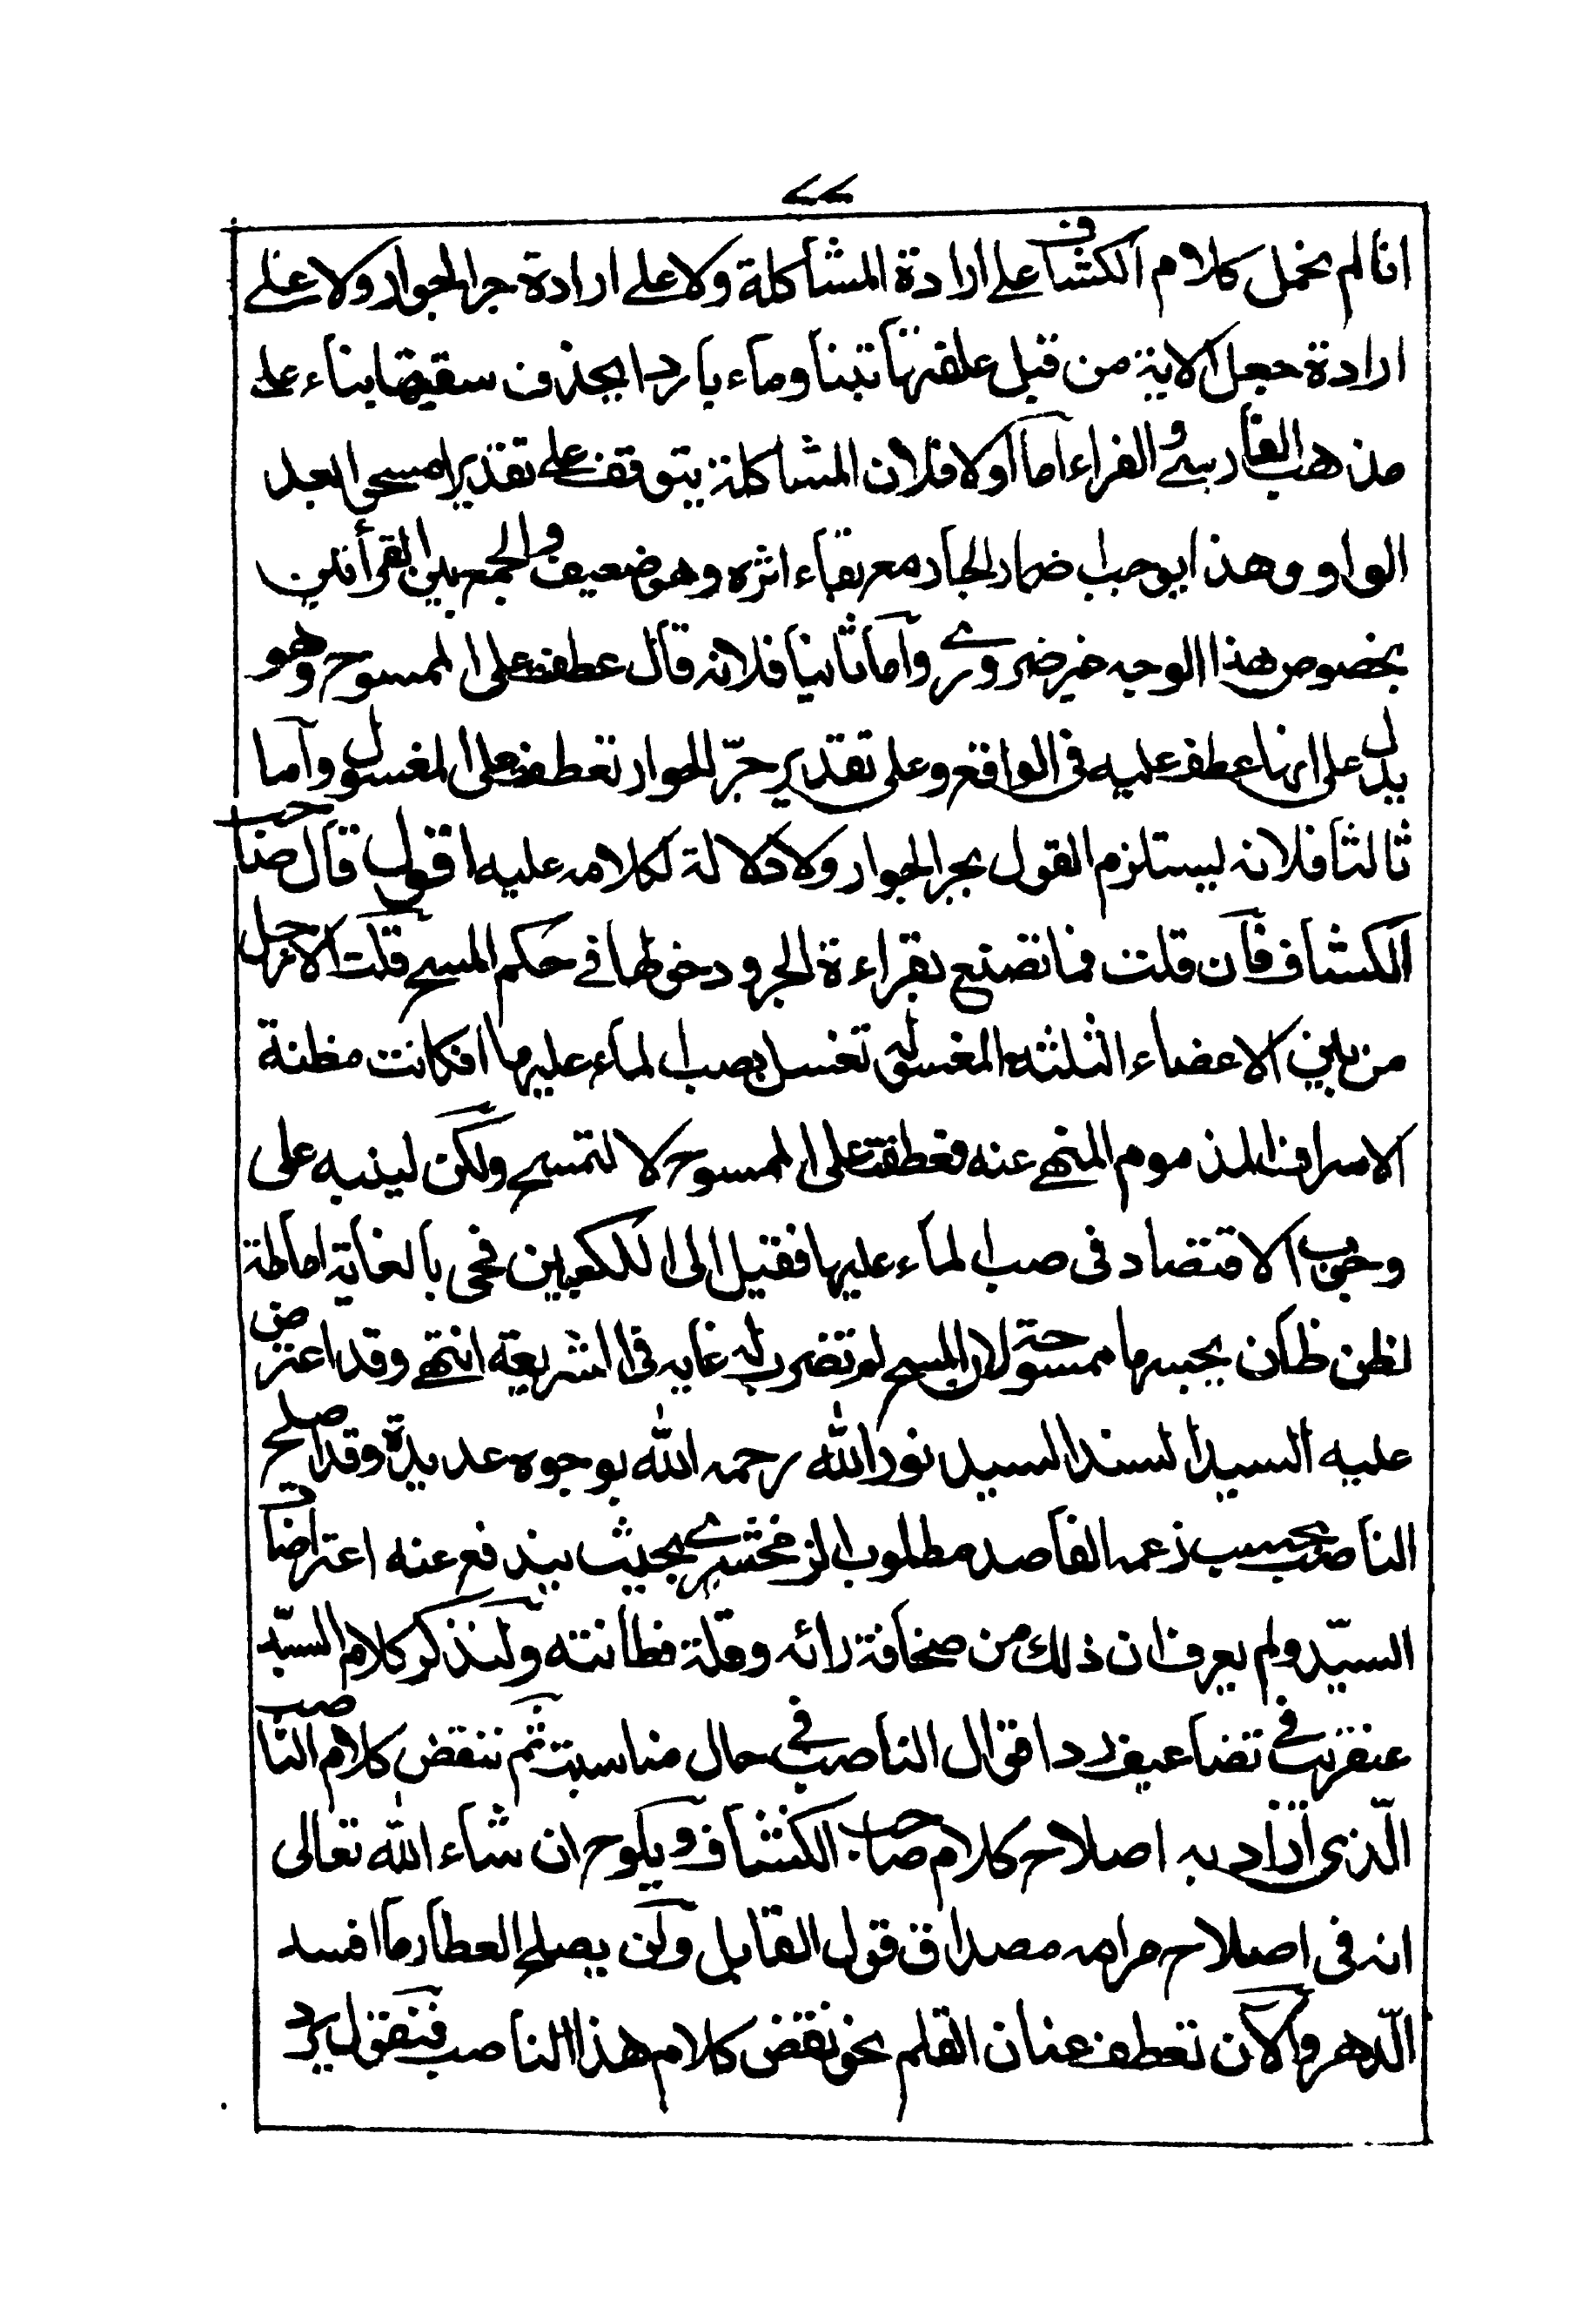 ٧٧
انا لم نحمل كلام الكشاف على ارادة المشاكلة ولا على ارادة جر الجوار ولا على
ارادة جعل الاية من قبل علفتها تبنا وماء باردا بحذف سقيتها بناء على
مذهب الفارسي و الفراء اما اولا فلان المشاكلة يتوقف على تقدير امسحوا بعد
الواو وهذا يوجب اضمار الجار مع بقاء اثره وهو ضعيف والجمع بين القرأتين
بخصوص هذا الوجه غير ضروري واما ثانيا فلانه قال عطف على الممسوح وهو
يدل على انها عطف عليه فى الواقع وعلى تقدير جرّ الجوار تعطف على المغسول واما
ثالثا فلانه يستلزم القول بجر الجوار ولا دلالة لكلامه عليه اقول قال صاحب
الكشاف فان قلت فما تصنع بقراءة الجر ودخولها في حكم المسح قلت الارجل
من بين الاعضاء الثلثة المغسولة تغسل بصب الماء عليها فكانت مظنة
الاسراف المذموم المنهي عنه فعطفت على الممسوح لا لتمسح ولكن لينبه على
وجوب الاقتصاد فى صب الماء عليها فقيل الى الكعبين فجى بالغاية اماطة
لظن ظان يحسبها ممسوحة لان المسح لم تضرب له غاية فى الشريعة انتهى وقد اعترض
عليه السيد السند السيد نور الله رحمه الله بوجوه عديدة وقد اصلح
الناصب بحسب زعمه الفاصد مطلوب الزمخشري بحيث يندفع عنه اعتراضات
السيّد ولم يعرف ان ذلك من صخافة رائه وقلة فطانته ولنذكر كلام السيّد
عنقريب في تضاعيف رد اقوال الناصب في حال مناسبت ثم ننقض كلام الناصب
الّذى اراد به اصلاح كلام صاحب الكشاف ويلوح ان شاء الله تعالى
انه فى اصلاح مرامه مصداق قول القايل ولن يصلح العطار ما افسد
الدّهر والآن نعطف عنان القلم نحو نقض كلام هذا الناصب فنقول يرد